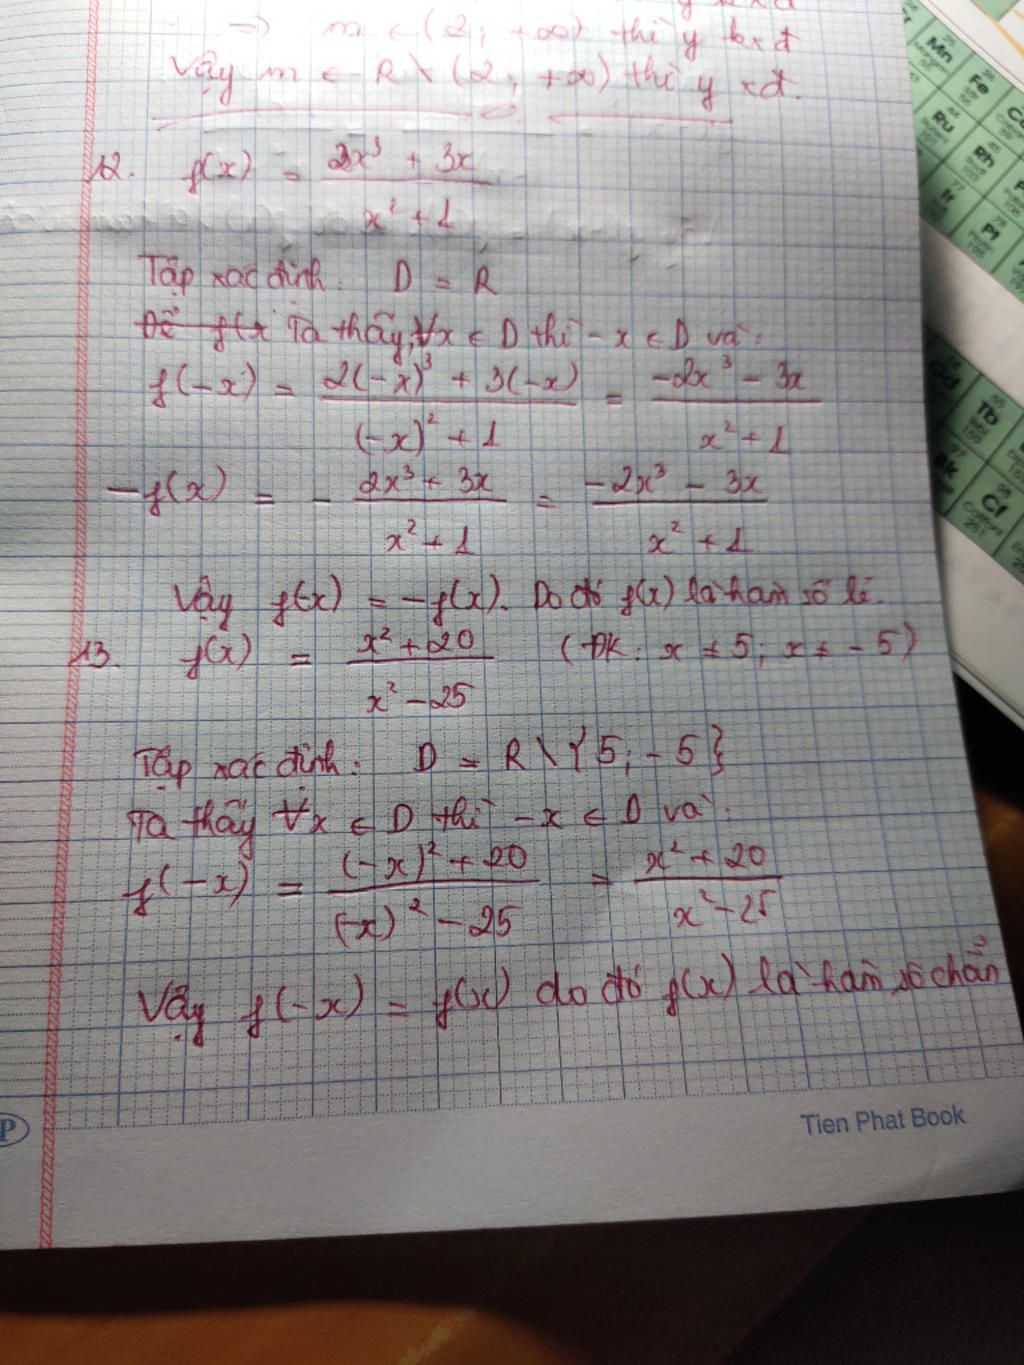 => m ∈ (2; +∞) thì y kxđ
Vậy m ∈ R \ (2; +∞) thì y xđ.
12. f(x) = (2x³ + 3x) / (x² + 1)
Tập xác định: D = R
Để f(x Ta thấy, ∀x ∈ D thì -x ∈ D và:
f(-x) = (2(-x)³ + 3(-x)) / ((-x)² + 1) = (-2x³ - 3x) / (x² + 1)
-f(x) = - (2x³ + 3x) / (x² + 1) = (-2x³ - 3x) / (x² + 1)
Vậy f(-x) = -f(x). Do đó f(x) là hàm số lẻ.
13. f(x) = (x² + 20) / (x² - 25) (ĐK: x ≠ 5; x ≠ -5)
Tập xác định: D = R \ {5; -5}
Ta thấy ∀x ∈ D thì -x ∈ D và:
f(-x) = ((-x)² + 20) / ((-x)² - 25) = (x² + 20) / (x² - 25)
Vậy f(-x) = f(x) do đó f(x) là hàm số chẵn
Tien Phat Book
P
Mn
Fe
Ru
Rh
Ir
Pt
Gd
Tb
Bk
Cf